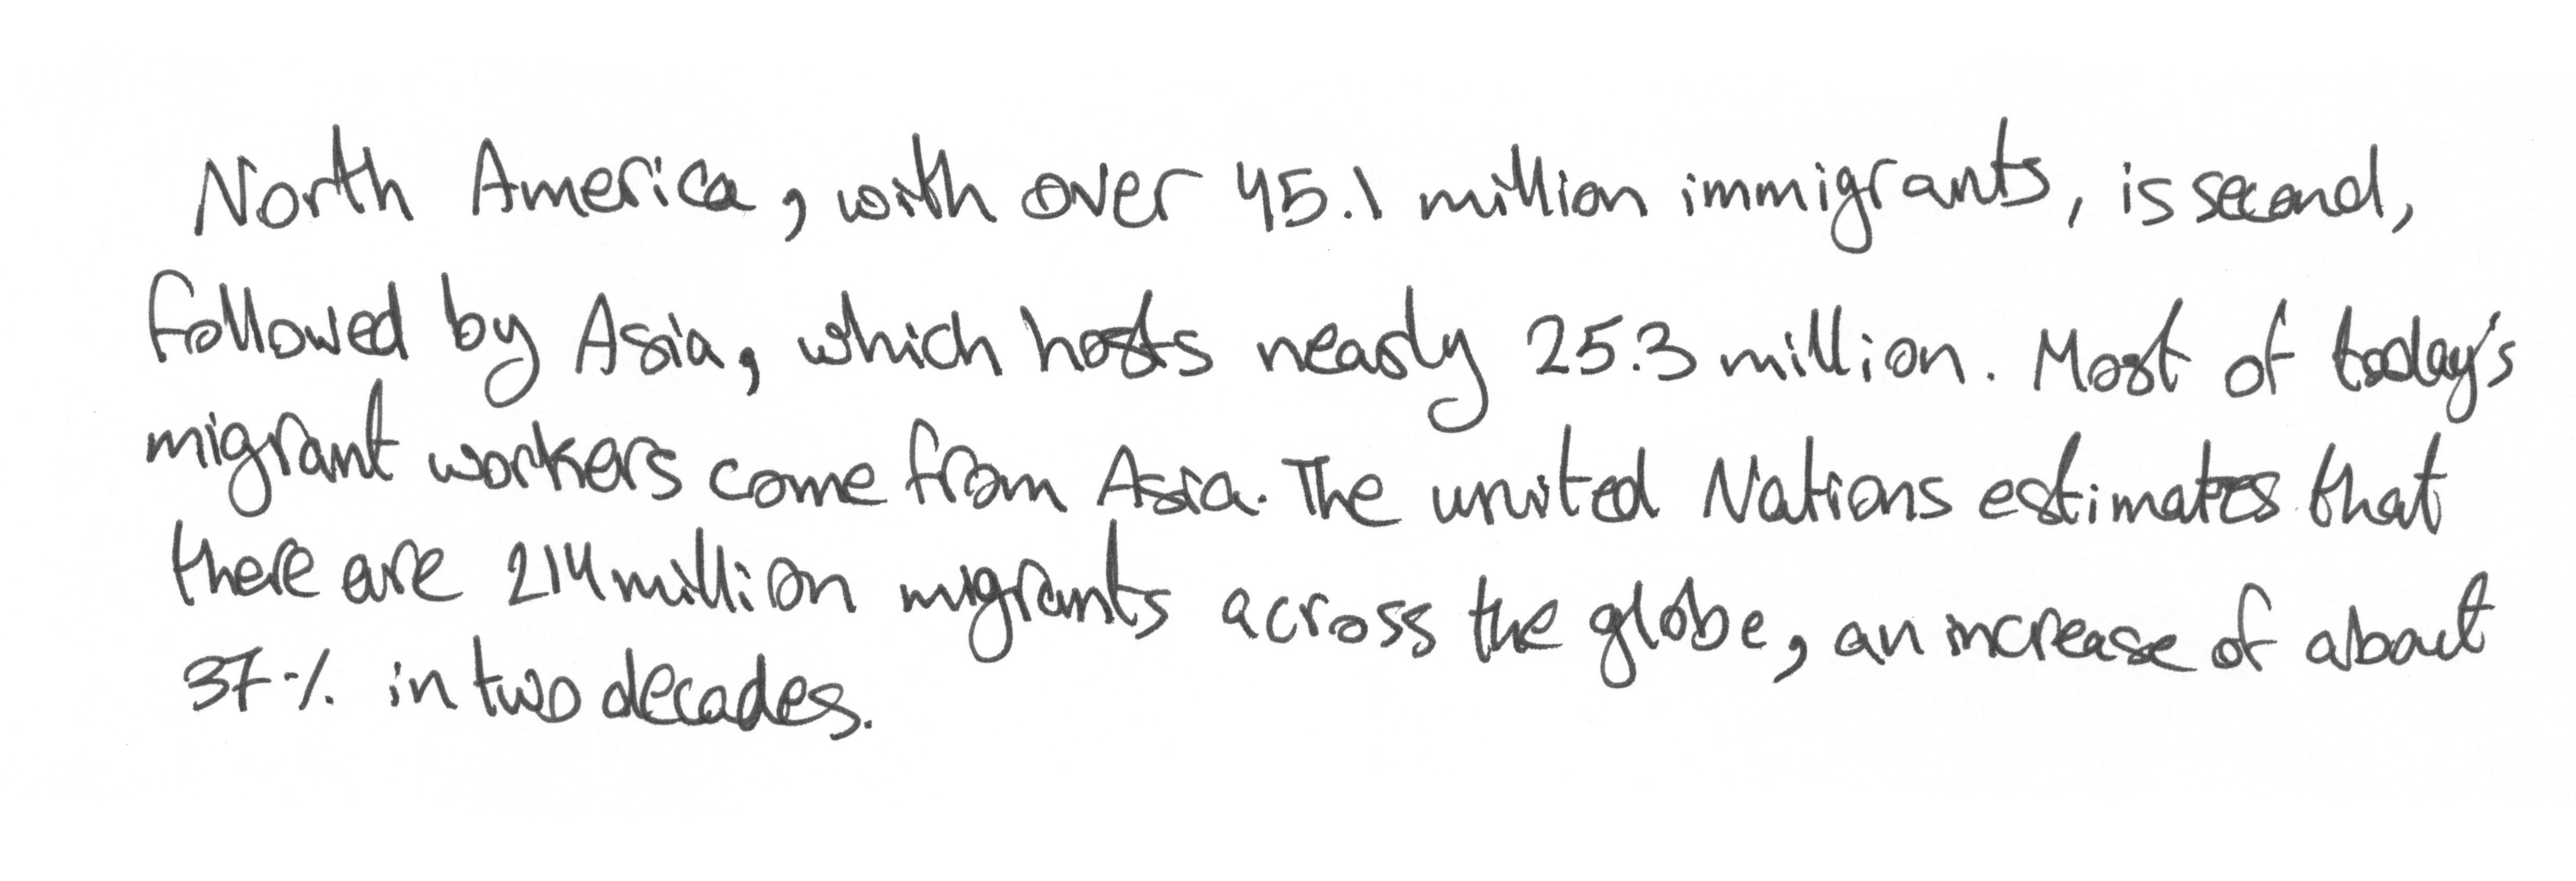 North America, with over 45.1 million immigrants, is second,
followed by Asia, which hosts nearly 25.3 million. Most of today's
migrant workers come from Asia. The united Nations estimates that
there are 214 million migrants across the globe, an increase of about
37% in two decades.